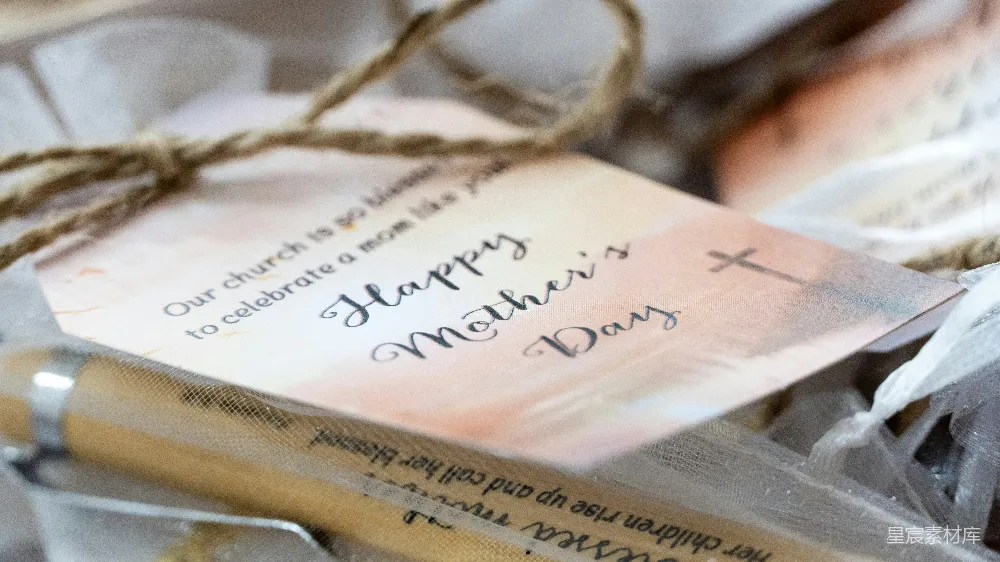 Our church is so blessed
to celebrate a mom like you!
Happy
Mother's
Day
Her children rise up and call her blessed.
Blessed
星宸素材库